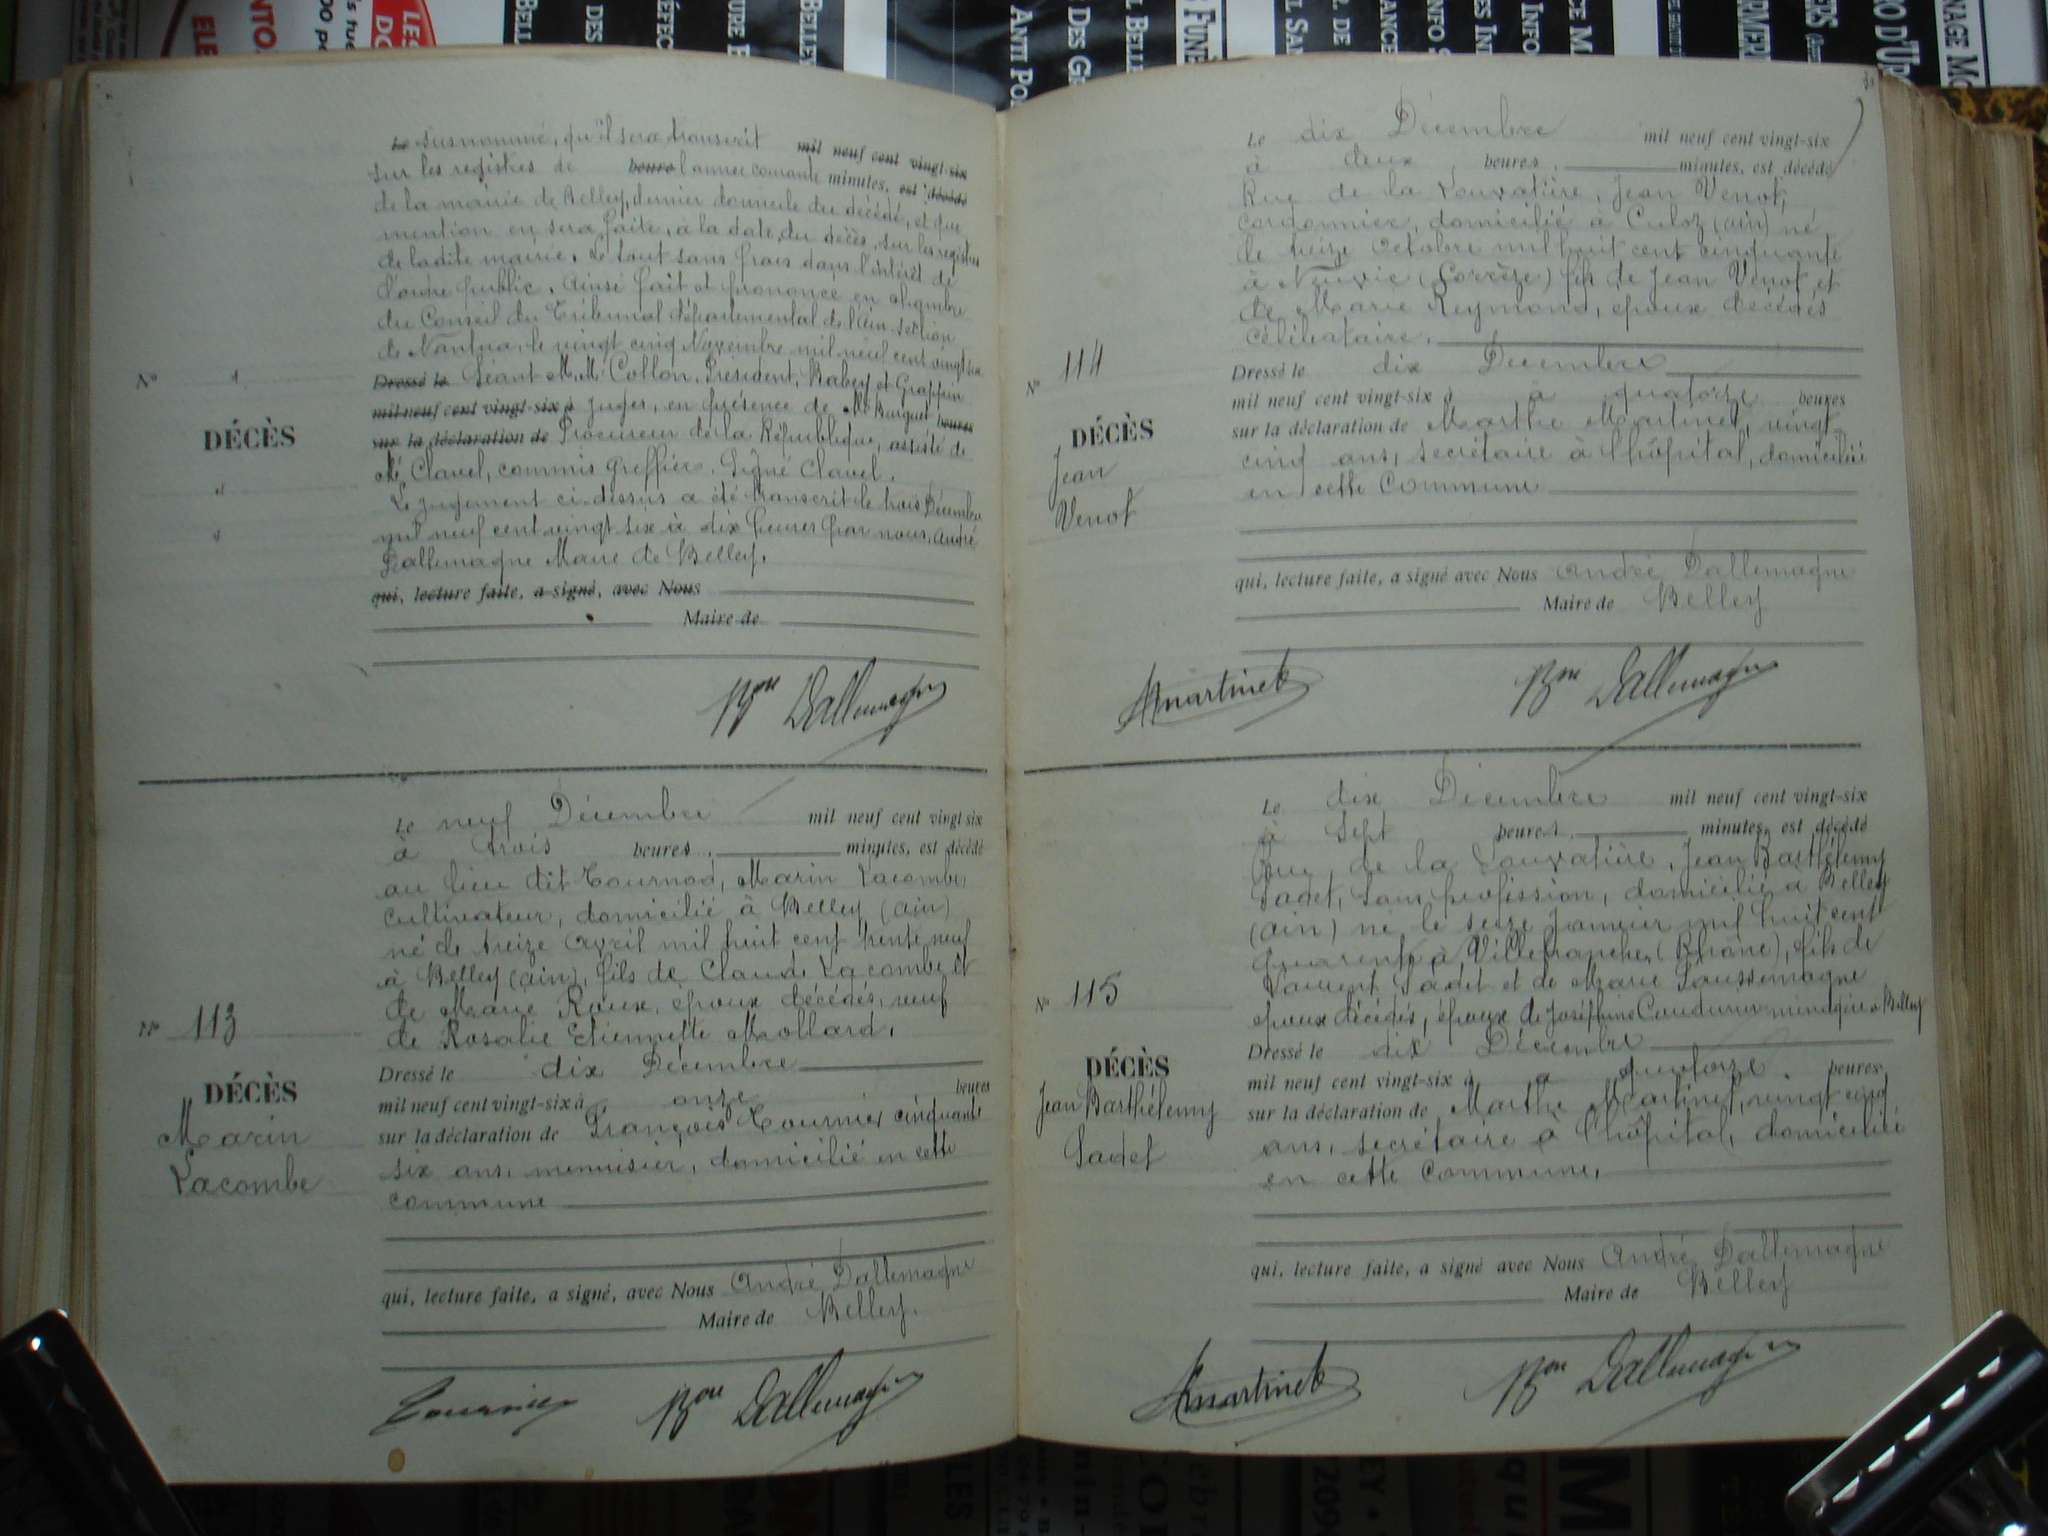 Le susnommé, qu'il sera transcrit mil neuf cent vingt-six
sur les registres de heure l'année courante minutes, est décédé
de la mairie de Belley, dernier domicile du décédé, et que
mention en sera faite, à la date du décès, sur les registres
de ladite mairie. Le tout sans frais dans l'intérêt de
l'ordre public. Ainsi fait et prononcé en chambre
du Conseil du Tribunal départemental de l'Ain section
de Nantua, le vingt cinq Novembre mil neuf cent vingt six
Dressé le Séant M.M. Collon, Président, Rabey et Grappin
mil neuf cent vingt-six à juges, en présence de Mr Burquet heures
sur la déclaration de Procureur de la République, assisté de
Me Clavel, commis greffier. Signé Clavel.
Le jugement ci-dessus a été transcrit le trois Décembre
mil neuf cent vingt six à dix heures par nous André
Dallemagne Maire de Belley.
qui, lecture faite, a signé, avec Nous
Maire de
N°
DÉCÈS
Bon Dallemagne
N° 113
DÉCÈS
Marin
Lacombe
Le neuf Décembre mil neuf cent vingt-six
à trois heures, minutes, est décédé
au lieu dit Tournod, Marin Lacombe
cultivateur, domicilié à Belley (ain)
né le treize avril mil huit cent trente neuf
à Belley (ain), fils de Claude Lacombe et
de Marie Roux, époux décédés, veuf
de Rosalie Etiennette Mollard.
Dressé le dix Décembre
mil neuf cent vingt-six à onze heures
sur la déclaration de François Tournier cinquante
six ans, menuisier, domicilié en cette
commune
qui, lecture faite, a signé, avec Nous André Dallemagne
Maire de Belley.
Tournier Bon Dallemagne
N° 114
DÉCÈS
Jean
Venot
Le dix Décembre mil neuf cent vingt-six
à deux heures, minutes, est décédé
Rue de la Louvatière, Jean Venot,
cordonnier, domicilié à Culoz (ain) né
le seize Octobre mil huit cent cinquante
à Neuvic (Corrèze) fils de Jean Venot et
de Marie Reymond, époux décédés
célibataire.
Dressé le dix Décembre
mil neuf cent vingt-six à à quatorze heures
sur la déclaration de Marthe Martinet, vingt
cinq ans, secrétaire à l'hôpital, domiciliée
en cette commune
qui, lecture faite, a signé avec Nous André Dallemagne
Maire de Belley
Martinet Bon Dallemagne
N° 115
DÉCÈS
Jean Barthélemy
Sadet
Le dix Décembre mil neuf cent vingt-six
à Sept heures, minutes, est décédé
Rue de la Louvatière, Jean Barthélemy
Sadet, sans profession, domicilié à Belley
(ain) né le seize Janvier mil huit cent
quarante à Villefranche (Rhône), fils de
Laurent Sadet et de Marie Saussemagne
époux décédés, époux de Joséphine Coudurier ménagère à Belley
Dressé le dix Décembre
mil neuf cent vingt-six à à quatorze heures
sur la déclaration de Marthe Martinet, vingt cinq
ans, secrétaire à l'hôpital, domiciliée
en cette commune.
qui, lecture faite, a signé avec Nous André Dallemagne
Maire de Belley
Martinet Bon Dallemagne